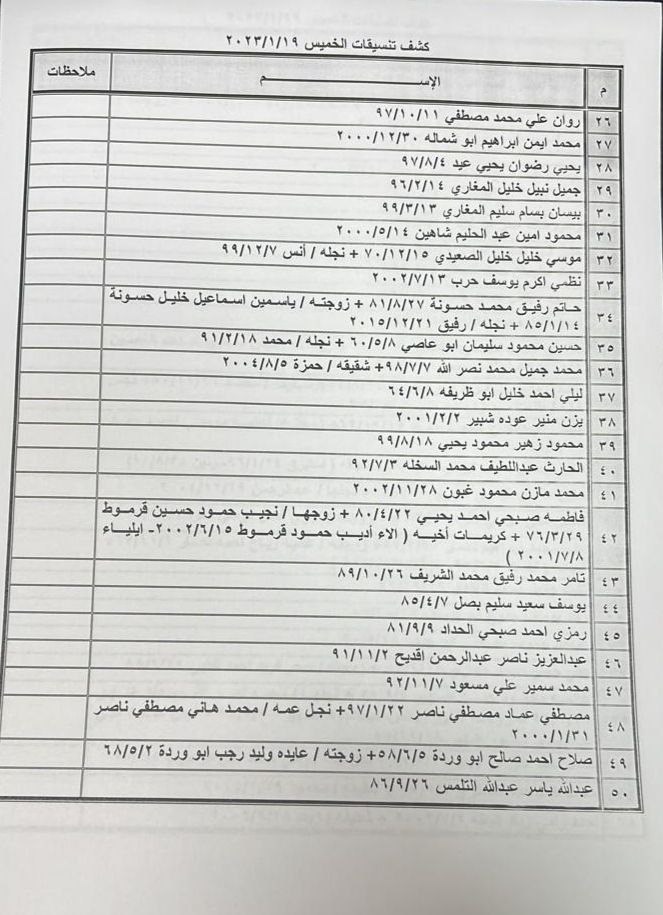 كشف تنسيقات الخميس ٢٠٢٣/١/١٩
م الإســـــــم ملاحظات
٢٦ روان علي محمد مصطفي ٩٧/١٠/١١
٢٧ محمد ايمن ابراهيم ابو شماله ٢٠٠٠/١٢/٣٠
٢٨ يحيي رضوان يحيي عيد ٩٧/٨/٤
٢٩ جميل نبيل خليل المغاري ٩٦/٢/١٤
٣٠ بيسان بسام سليم المغاري ٩٩/٣/١٣
٣١ محمود امين عبد الحليم شاهين ٢٠٠٠/٥/١٤
٣٢ موسي خليل خليل الصعيدي ٧٠/١٢/١٥ + نجله / أنس ٩٩/١٢/٧
٣٣ نظمي اكرم يوسف حرب ٢٠٠٢/٧/١٣
٣٤ حاتم رفيق محمد حسونة ٨١/٨/٢٧ + زوجته / ياسمين اسماعيل خليل حسونة
٨٥/١/١٤ + نجله / رفيق ٢٠١٥/١٢/٢١
٣٥ حسين محمود سليمان ابو عاصي ٦٠/٥/٨ + نجله / محمد ٩١/٢/١٨
٣٦ محمد جميل محمد نصر الله ٩٨/٧/٧+ شقيقه / حمزة ٢٠٠٤/٨/٥
٣٧ ليلي احمد خليل ابو ظريفه ٦٤/٦/٨
٣٨ يزن منير عوده شبير ٢٠٠١/٢/٢
٣٩ محمود زهير محمود يحيي ٩٩/٨/١٨
٤٠ الحارث عبداللطيف محمد السخله ٩٢/٧/٣
٤١ محمد مازن محمود غبون ٢٠٠٢/١١/٢٨
٤٢ فاطمه صبحي احمد يحيي ٨٠/٤/٢٢ + زوجها / نجيب حمود حسين قرموط
٧٦/٣/٢٩ + كريمات أخيه ( الاء أديب حمود قرموط ٢٠٠٢/٦/١٥- ايلياء
٢٠٠١/٧/٨ )
٤٣ تامر محمد رفيق محمد الشريف ٨٩/١٠/٢٦
٤٤ يوسف سعيد سليم بصل ٨٥/٤/٧
٤٥ رمزي احمد صبحي الحداد ٨١/٩/٩
٤٦ عبدالعزيز ناصر عبدالرحمن اقديح ٩١/١١/٢
٤٧ محمد سمير علي مسعود ٩٢/١١/٧
٤٨ مصطفي عماد مصطفي ناصر ٩٧/١/٢٢+ نجل عمه / محمد هاني مصطفي ناصر
٢٠٠٠/١/٣١
٤٩ صلاح احمد صالح ابو وردة ٥٨/٦/٥+ زوجته / عايده وليد رجب ابو وردة ٦٨/٥/٢
٥٠ عبدالله ياسر عبدالله التلمس ٨٦/٩/٢٦